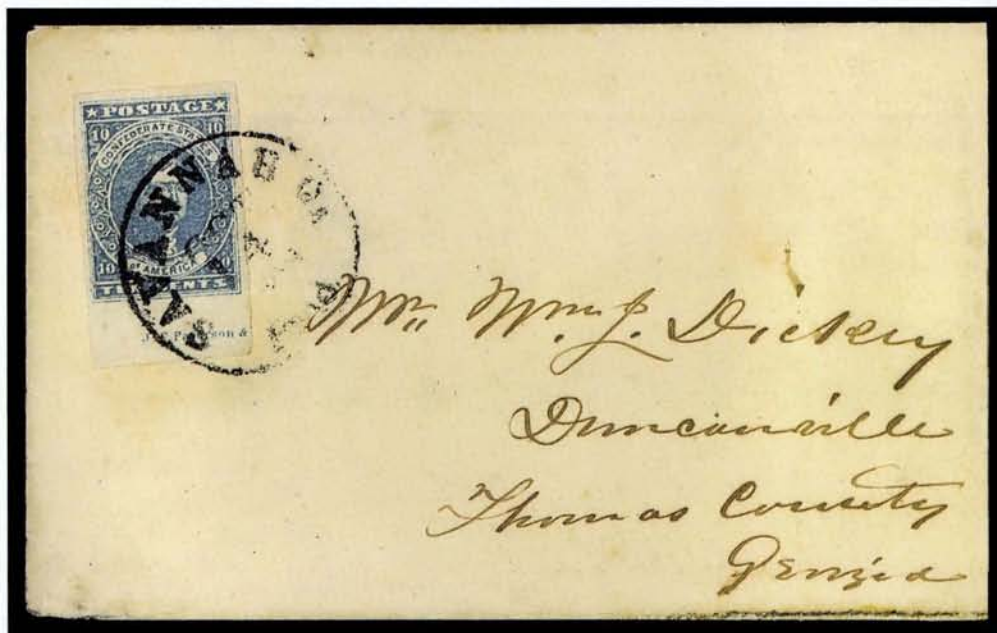 ★POSTAGE★
10 10
CONFEDERATE STATES
OF AMERICA
10 10
TEN CENTS
J. Paterson &
SAVANNAH GA
Mr. Wm. J. Dickey
Duncanville
Thomas County
Georgia